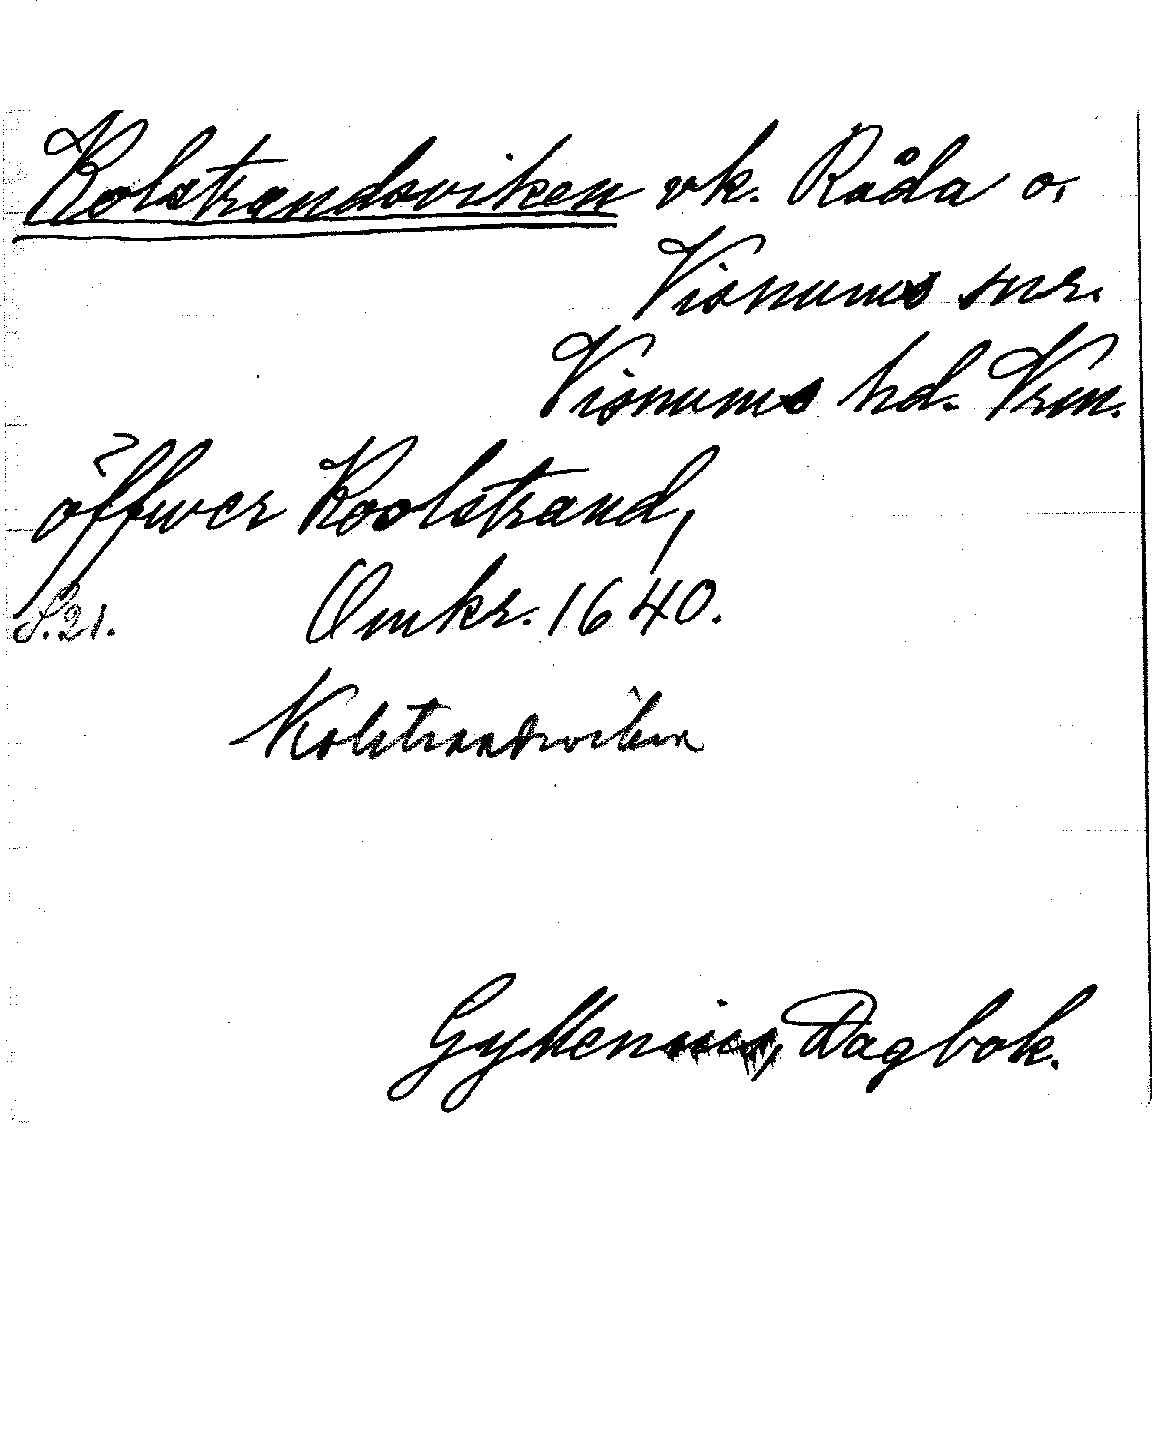 Kolstrandsviken vk. Råda o.
Visnums snr.
Visnums hd. Vrm.
öffwer Koolstrand,
S.21. Omkr. 1640.
Kolstrandsviken
Gyllenius, Dagbok.